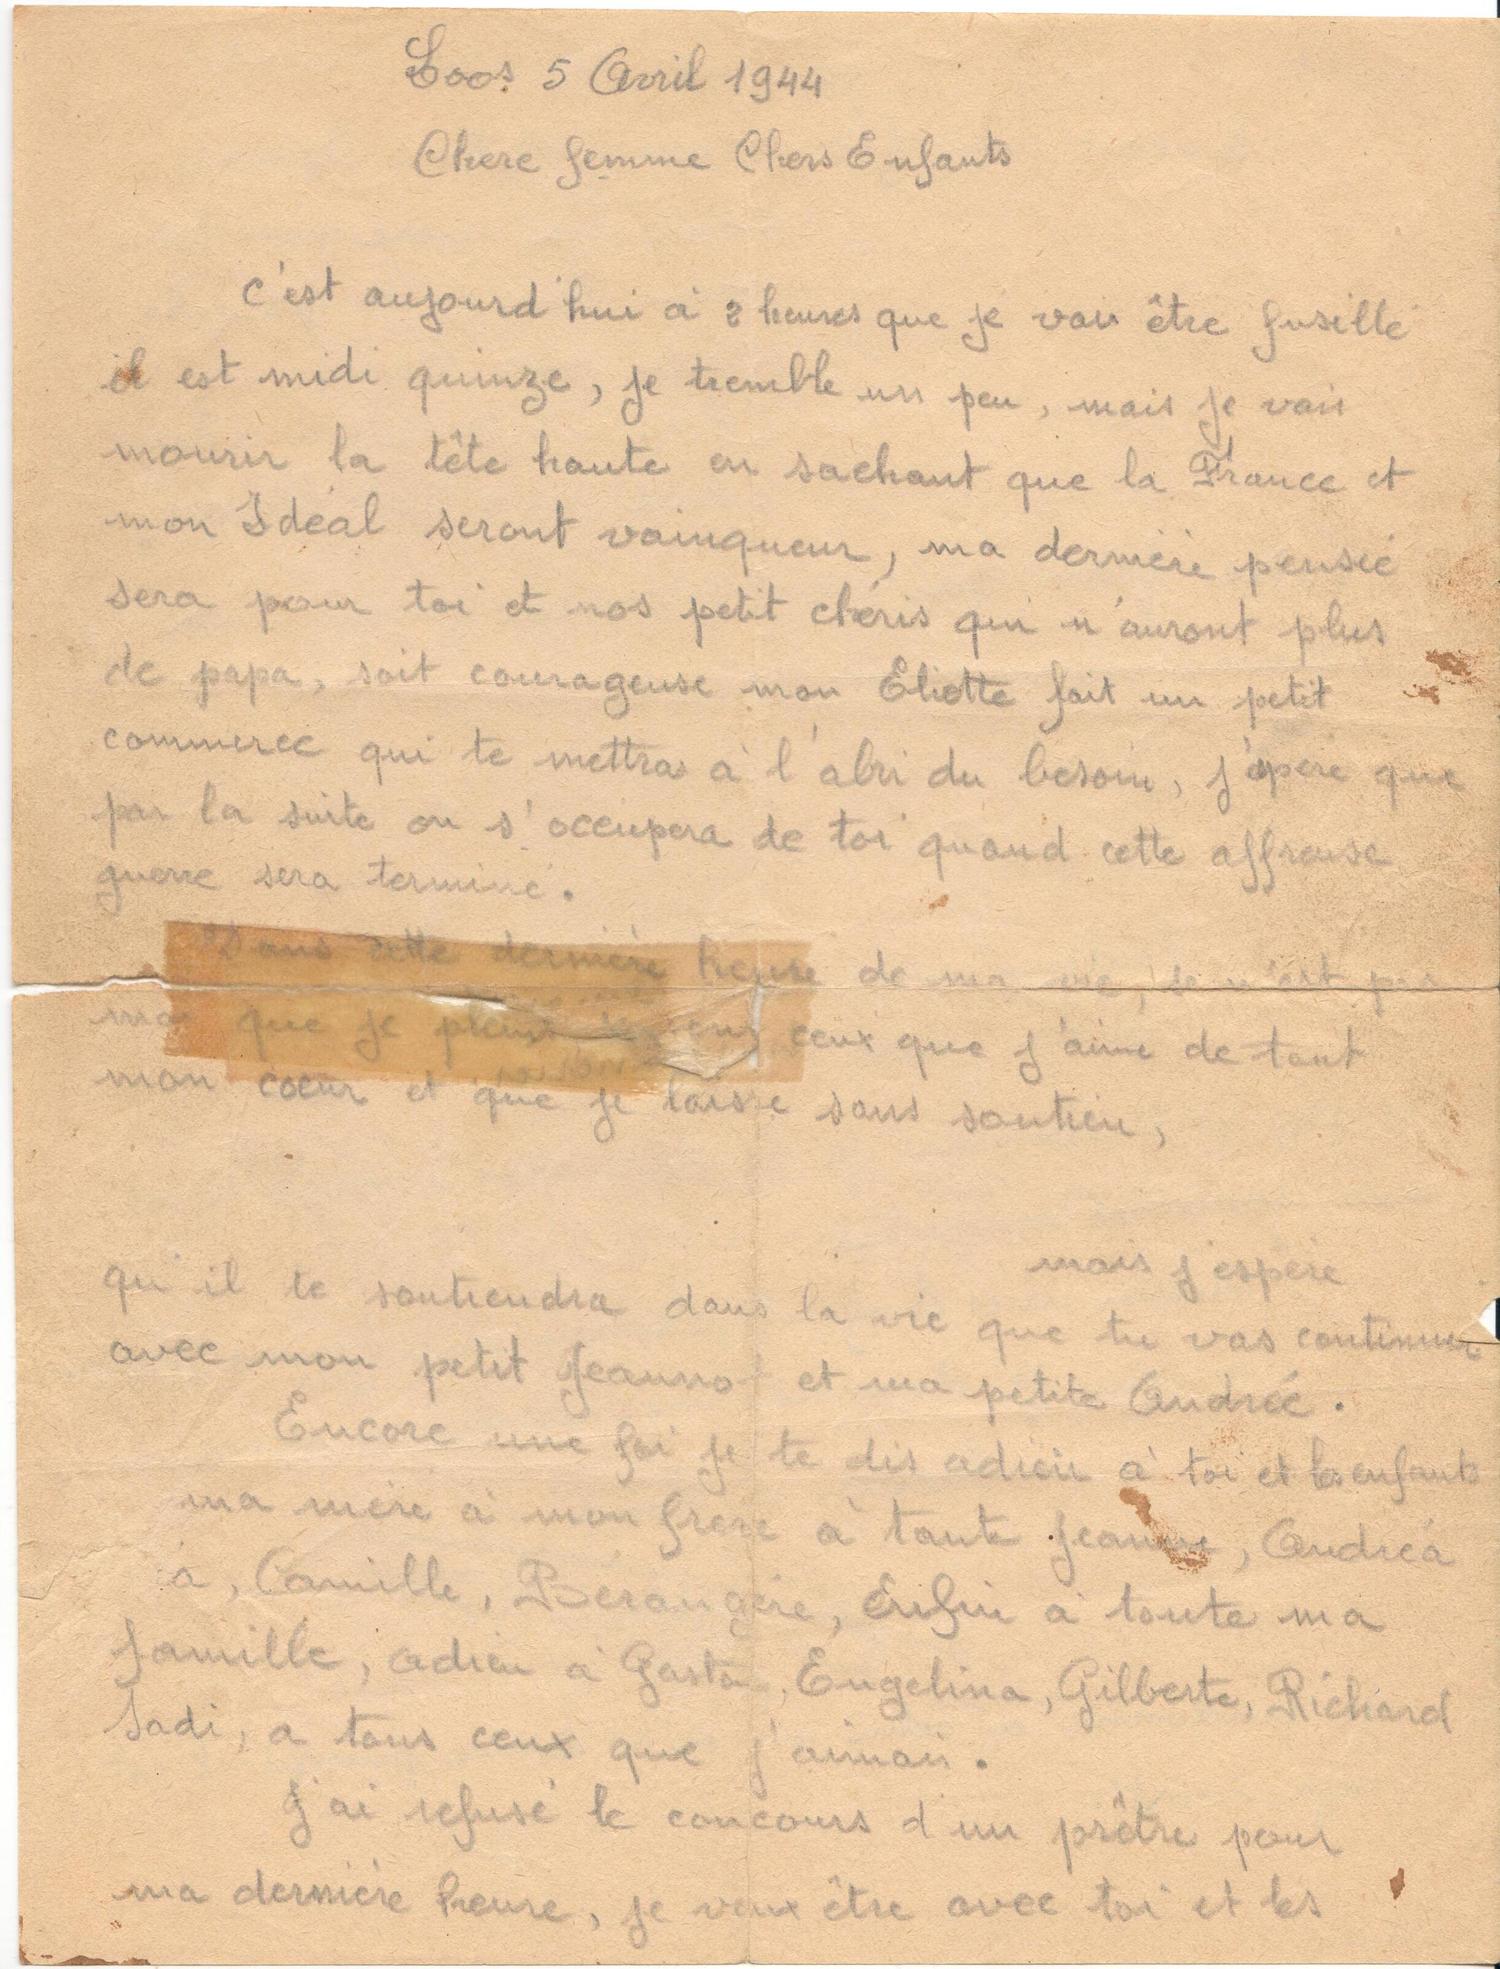 Loos 5 Avril 1944
Chere femme Chers Enfants
c'est aujourd'hui à 2 heures que je vais être fusillé
il est midi quinze, je tremble un peu, mais je vais
mourir la tête haute en sachant que la France et
mon Idéal seront vainqueur, ma dernière pensée
sera pour toi et nos petit chéris qui n'auront plus
de papa, soit courageuse mon Eliette fait un petit
commerce qui te mettra à l'abri du besoin, j'éspère que
par la suite on s'occupera de toi quand cette affreuse
guerre sera terminé.
Dans cette dernière heure de ma vie, se n'est pas
moi que je pleure ceux que j'aime de tout
mon coeur et que je laisse sans soutien,
mais j'espère
qu'il te soutiendra dans la vie que tu vas continuer
avec mon petit Jeannot et ma petite Andrée.
Encore une foi je te dis adieu à toi et les enfants
ma mère à mon frere à tante Jeanne, Andréa
à, Camille, Bérangère, Enfin à toute ma
famille, adieu à Gaston, Engelina, Gilberte, Richard
Sadi, a tous ceux que j'aimais.
J'ai refusé le concours d'un prêtre pour
ma dernière heure, je veux être avec toi et les